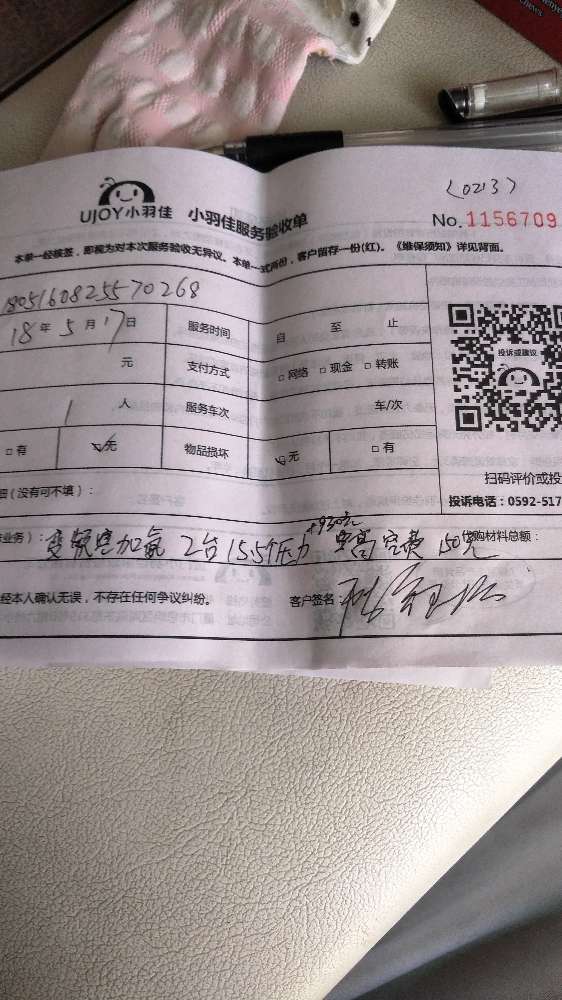 (0213)
UJOY小羽佳 小羽佳服务验收单
No.1156709
本单一经核签，即视为对本次服务验收无异议。本单一式两份，客户留存一份(红)。《维保须知》详见背面。
180516082557 0268
18年5月17日 服务时间 自 至 止
元 支付方式 □网络 □现金 □转账
投诉或建议
1人 服务车次 车/次
□有 □无 物品损坏 □无 □有
扫码评价或投
细(没有可不填)：
投诉电话：0592-517
业务)： 变频 加氟 2台 15.5个压力 +930元 高空费 150元 代购材料总额：
经本人确认无误，不存在任何争议纠纷。 客户签名：